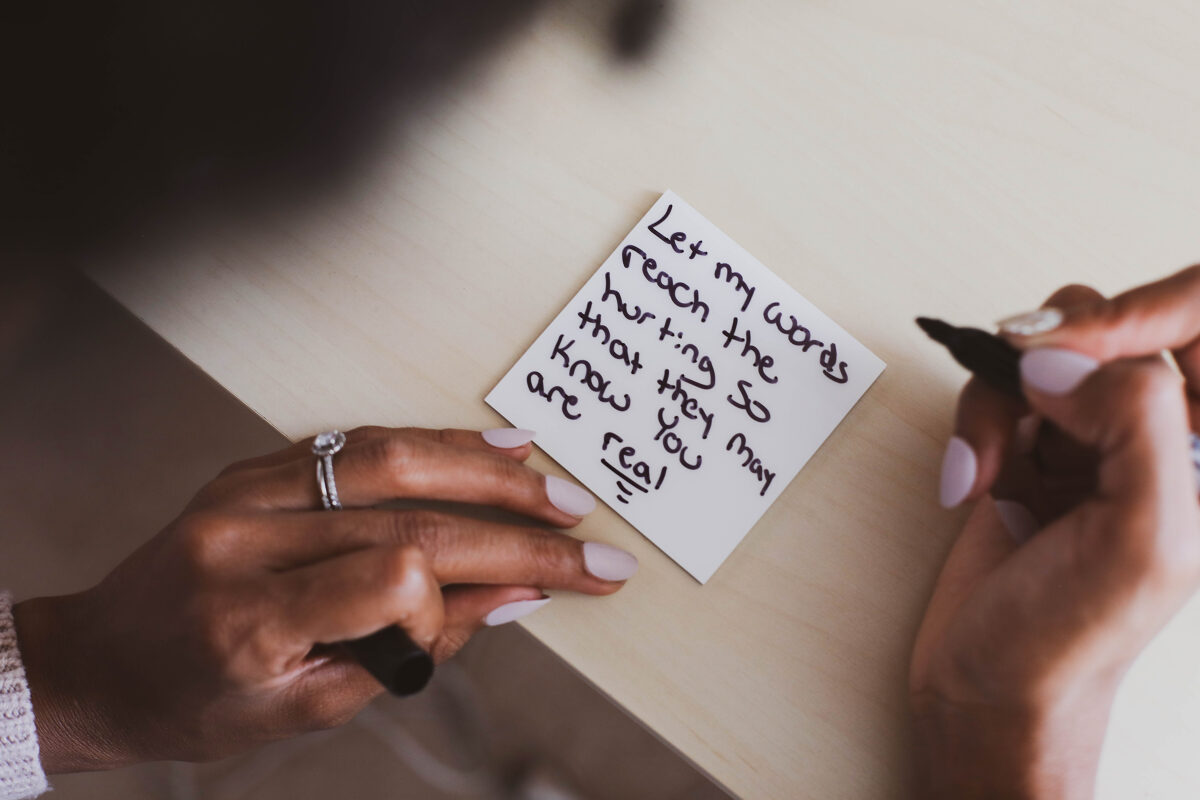 Let my words
reach the
hurting so
that they may
know you
are real